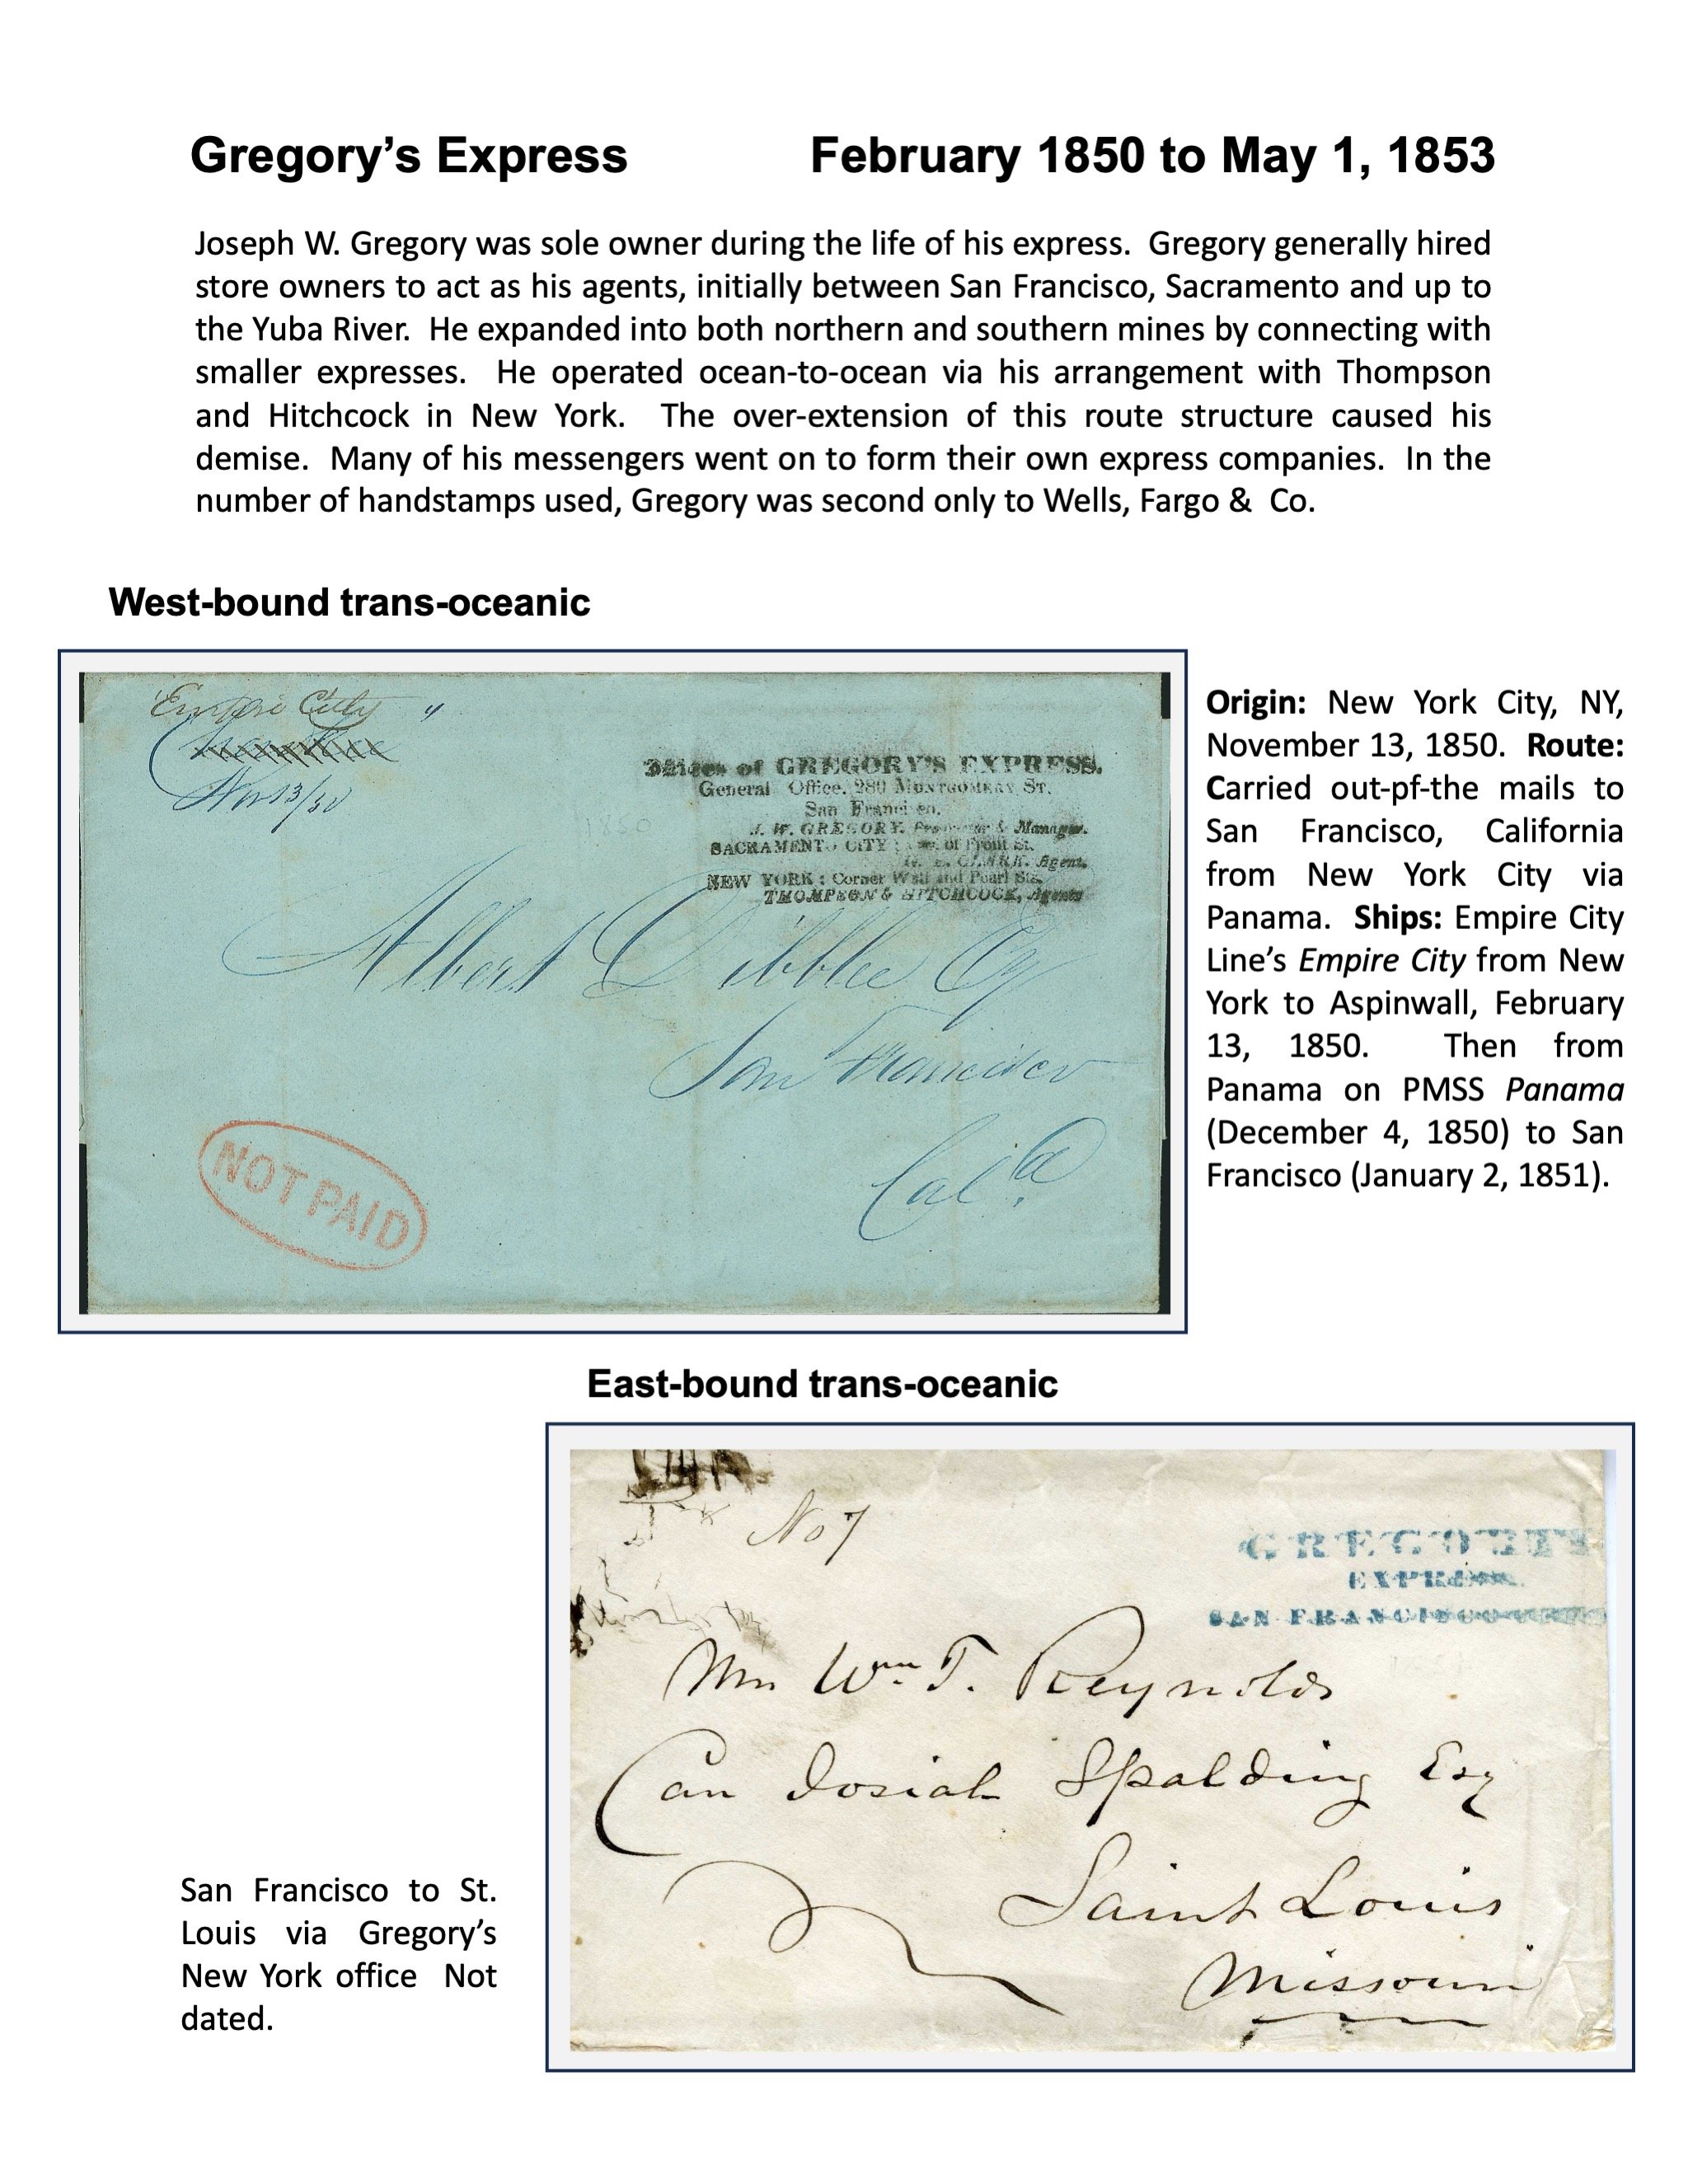 Gregory’s Express February 1850 to May 1, 1853
Joseph W. Gregory was sole owner during the life of his express. Gregory generally hired
store owners to act as his agents, initially between San Francisco, Sacramento and up to
the Yuba River. He expanded into both northern and southern mines by connecting with
smaller expresses. He operated ocean-to-ocean via his arrangement with Thompson
and Hitchcock in New York. The over-extension of this route structure caused his
demise. Many of his messengers went on to form their own express companies. In the
number of handstamps used, Gregory was second only to Wells, Fargo & Co.
West-bound trans-oceanic
"Empire City"
Nov 13/50
1850
of GREGORY'S EXPRESS.
General Office, 280 MONTGOMERY ST.
San Francisco.
J. W. GREGORY, & Manager.
SACRAMENTO CITY : of Front St.
CLARK, Agent.
NEW YORK : Corner Wall and Pearl Sts.
THOMPSON & HITCHCOCK, Agents
Albert Dibblee Esq
San Francisco
Cala.
NOT PAID
Origin: New York City, NY,
November 13, 1850. Route:
Carried out-pf-the mails to
San Francisco, California
from New York City via
Panama. Ships: Empire City
Line’s Empire City from New
York to Aspinwall, February
13, 1850. Then from
Panama on PMSS Panama
(December 4, 1850) to San
Francisco (January 2, 1851).
East-bound trans-oceanic
No 7
GREGORY'S
EXPRESS
SAN FRANCISCO
Mr. Wm. T. Reynolds
Care Josiah Spalding Esq
Saint Louis
Missouri
San Francisco to St.
Louis via Gregory’s
New York office Not
dated.